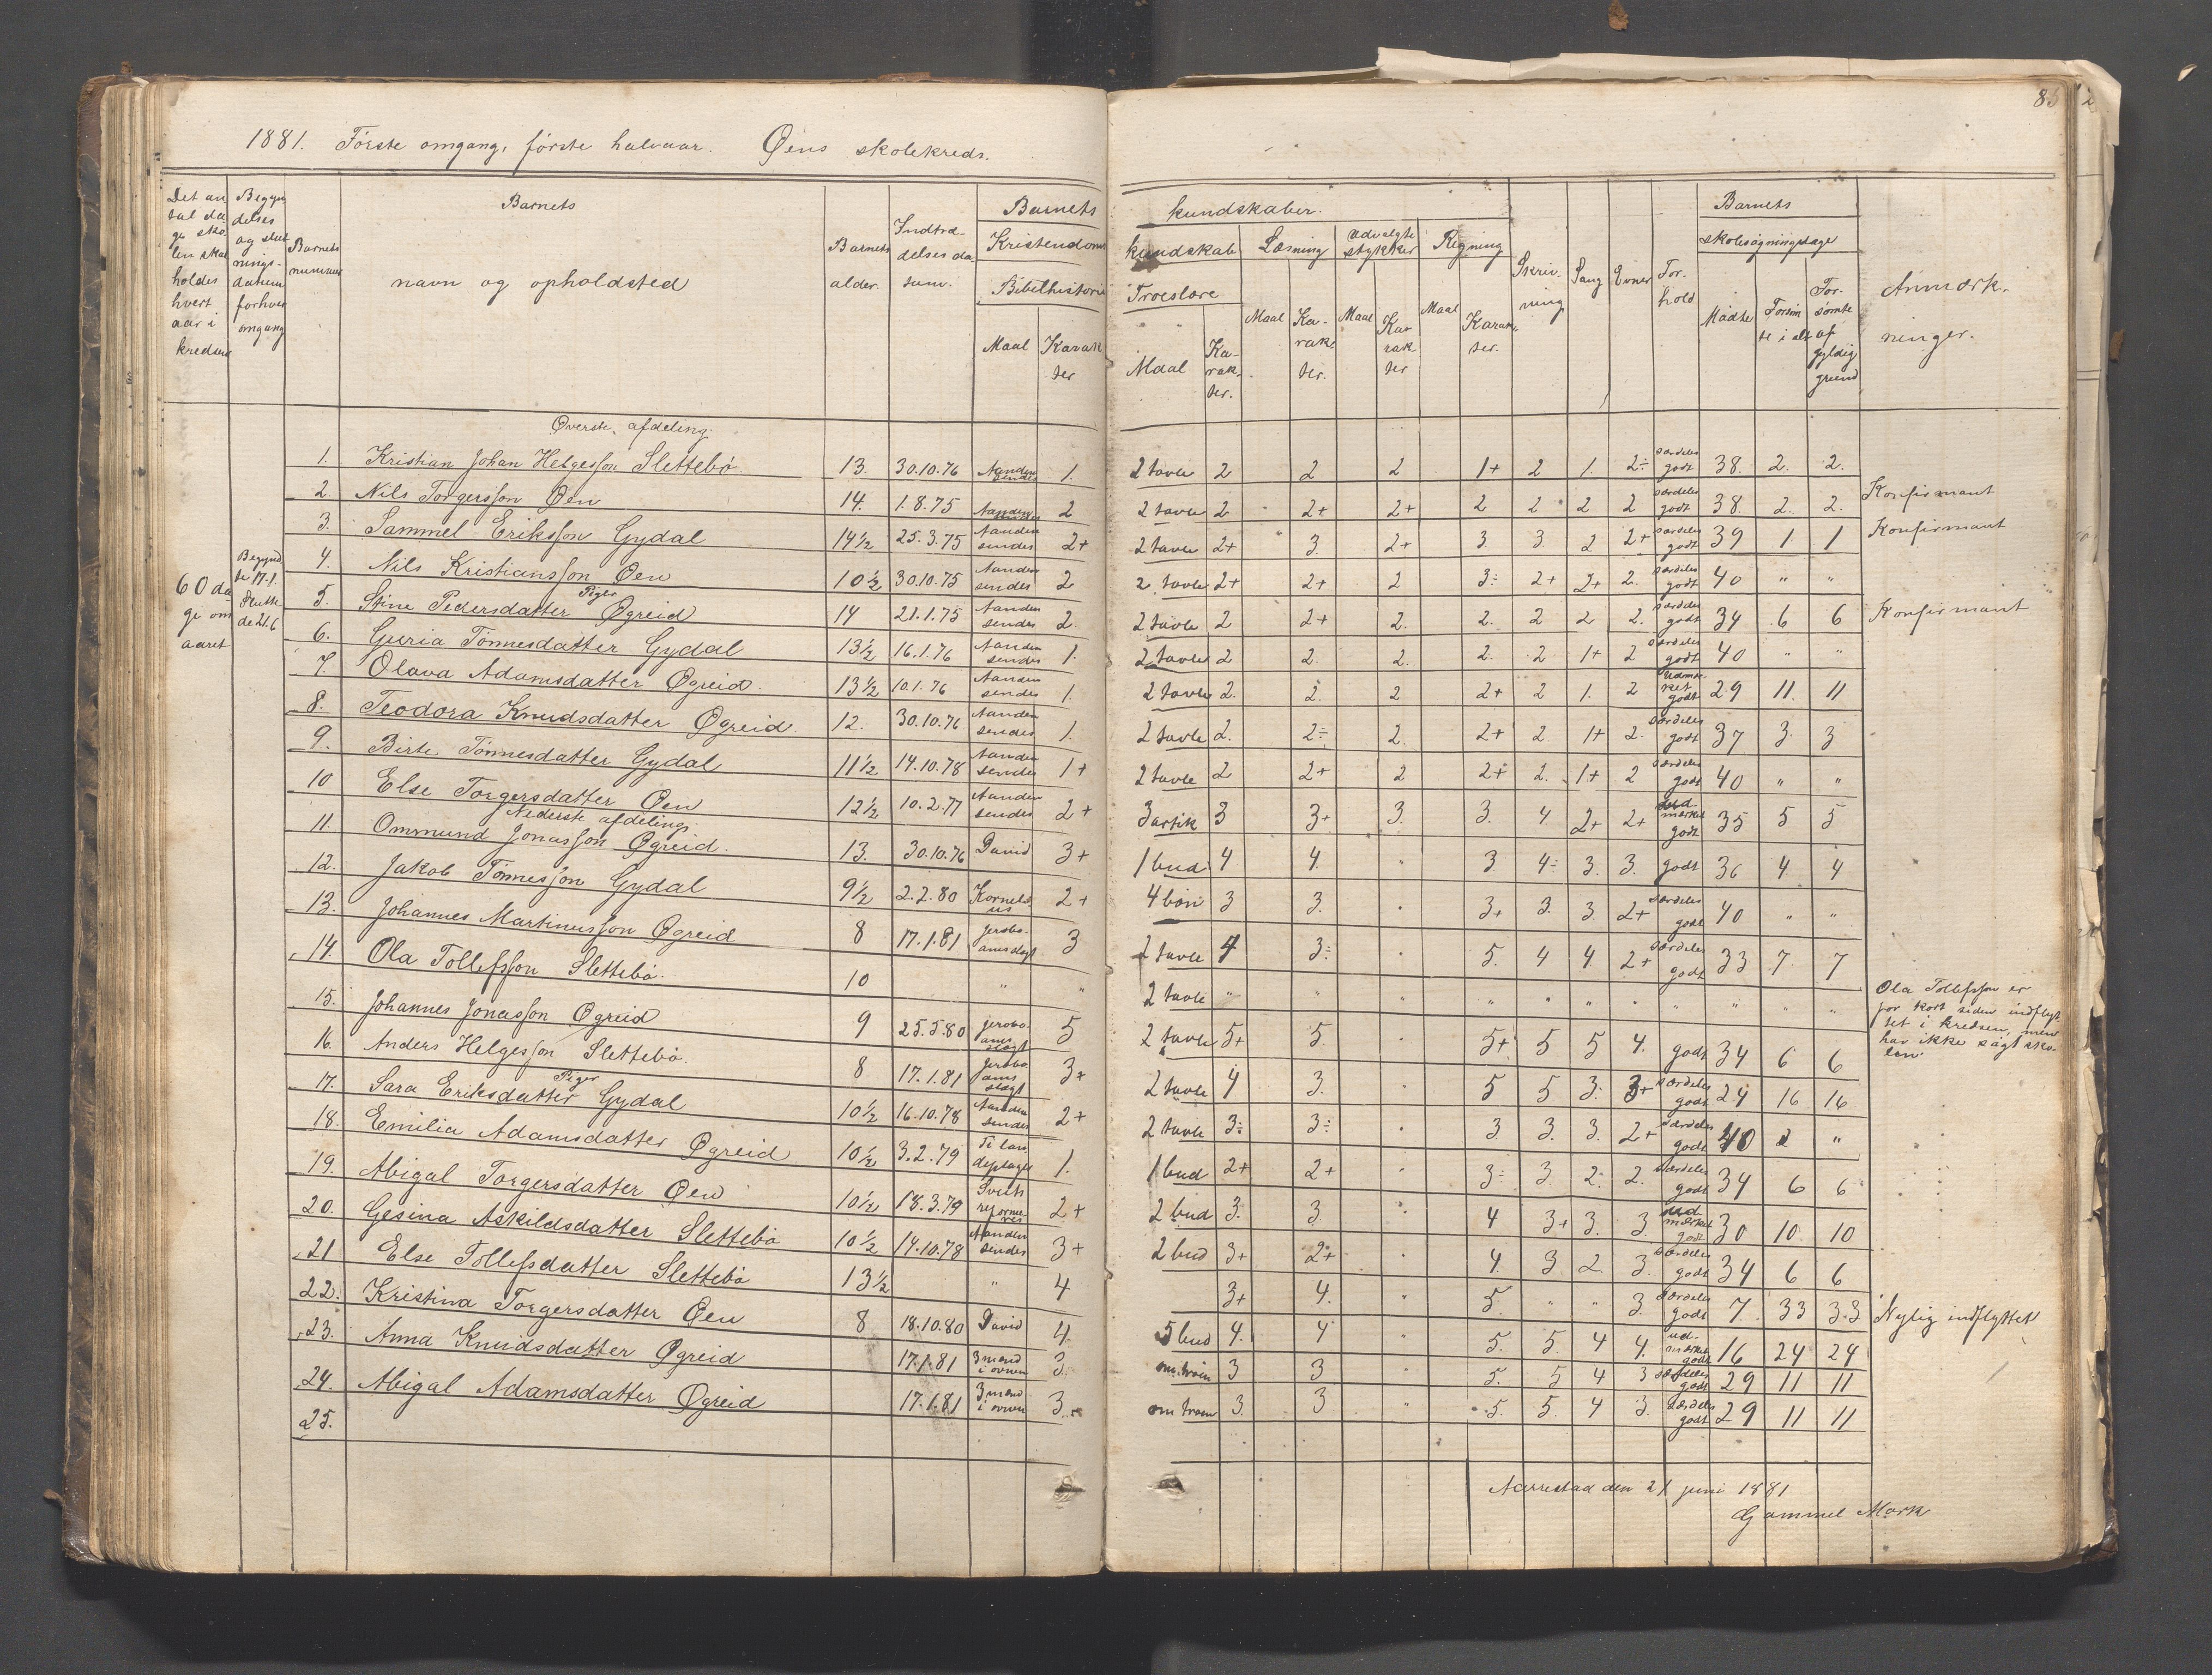 85
1881. Første omgang, første halvaar. Øens skolekreds.
Det antal dage skolen skal holdes hvert aar i kredsen
Begyndelses og slutningsdatum forhver omgang
Barnets nummer
Barnets navn og opholdsted
Barnets alder.
Indtrædelses datum.
Barnets kundskaber.
Kristendoms kundskab
Bibelhistorie
Maal Karakter
Troeslære
Maal Karakter.
Læsning
Maal Karakter.
Udvalgte stykker
Maal Karakter
Regning
Maal Karakter.
Skrivning
Sang
Evner
Forhold
Barnets skolesøgningsdage
Mødte
Forsømte i alt
Forsømte af gyldig grund
Anmærkninger.
60 dage om aaret
Begyndte 17.1. Slutte de 21.6
Øverste afdeling.
1. Kristian Johan Helgesson Slettebø 13. 30.10.76 Aanden sendes 1. 2 tavle 2 2 2 1+ 2 1. 2÷ særdeles godt 38. 2. 2.
2. Nils Torgersson Øen 14. 1.8.75 Aanden sendes 2 2 tavle 2 2+ 2+ 2 2 2 2 særdeles godt 38 2. 2. Konfirmant
3. Sammel Eriksson Gydal 14½ 25.3.75 Aanden sendes 2+ 2 tavle 2+ 3. 2+ 3. 3. 2 2+ særdeles godt 39 1. 1 Konfirmant
4. Nils Kristiansson Øen 10½ 30.10.75 Aanden sendes 2 2 tavle 2+ 2+ 2 3÷ 2+ 2+ 2. særdeles godt 40 " "
Piger
5. Stine Pedersdatter Øgreid 14 21.1.75 Aanden sendes 2. 2 tavle 2 2+ 2. 2. 2 2 2. særdeles godt 34 6 6 Konfirmant
6. Guria Tønnesdatter Gydal 13½ 16.1.76 Aanden sendes 1. 2 tavle 2 2. 2. 2. 2 1+ 2 særdeles godt 40 " "
7. Olava Adamsdatter Øgreid. 13½ 10.1.76 Aanden sendes 1. 2 tavle 2. 2. 2 2+ 2 1. 2 Udmærket godt 29 11. 11
8. Teodora Knudsdatter Øgreid. 12. 30.10.76 Aanden sendes 1. 2 tavle 2. 2÷ 2. 2+ 2 1+ 2. særdeles godt 37 3. 3
9. Birte Tønnesdatter Gydal 11½ 14.10.78 Aanden sendes 1+ 2 tavle 2 2+ 2 2+ 2. 1+ 2 særdeles godt 40 " "
10 Else Torgersdatter Øen 12½ 10.2.77 Aanden sendes 2+ 3 artik 3 3+ 3. 3. 4 2+ 2+ udmærket godt 35 5 5
Nederste afdeling.
11. Ommund Jonasson Øgreid. 13. 30.10.76 David 3+ 1 bud 4 4. " 3 4÷ 3. 3. godt 36 4 4
12. Jakob Tønnesson Gydal 9½ 2.2.80 Kornelius 2+ 4 bøn 3 3. 3+ 3. 3. 2+ særdeles godt 40 " "
13. Johannes Martinusson Øgreid 8 17.1.81 Jeroboams slegt 3 2 tavle 4 3÷ 5. 4 4. 2+ særdeles godt 33 7. 7
14. Ola Tollefsson Slettebø. 10 " " 2 tavle " " " " " " " " " " Ola Tollefsson er for kort siden indflyttet i kredsen, men har ikke søgt skolen.
15. Johannes Jonasson Øgreid 9 25.5.80 Jeroboams slegt 5 2 tavle 5+ 5. 5+ 5 5 4. godt 34 6 6
16. Anders Helgesson Slettebø. 8 17.1.81 Jeroboams slegt 3+ 2 tavle 4 3. 5 5 3. 3+ særdeles godt 24 16 16
Piger
17. Sara Eriksdatter Gydal 10½ 16.10.78 Aanden sendes 2+ 2 tavle 3÷ 3÷ 3 3. 3. 2+ særdeles godt 40 "
18. Emilia Adamsdatter Øgreid 10½ 3.2.79 1. 1 bud 2+ 2+ 3÷ 3. 2. 2. særdeles godt 34 6 6
19. Abigal Torgersdatter Øen 10½ 18.3.79 2+ 2 bud 3. 3. 4 3+ 3. 3. udmærket godt 30 10. 10
20. Gesina Askildsdatter Slettebø 10½ 14.10.78 Aanden sendes 3+ 2 bud 3+ 2+ 4. 3 2. 3. særdeles godt 34 6 6
21 Else Tollefsdatter Slettebø 13½ " 4 3+ 4. " 5. " " 3. særdeles godt 7. 33 33 Nylig indflyttet
22. Kristina Torgersdatter Øen 8 18.10.80 David 4. 5 bud 4. 4 " 5. 5. 4 4. udmærket godt 16 24 24
23. Anna Knudsdatter Øgreid 17.1.81 3 mænd i ovnen 3. 3 3 5. 5 4 3 særdeles godt 29 11 11
24. Abigal Adamsdatter Øgreid 17.1.81 3 mænd i ovnen 3. 3. 3 " 5. 5. 4 3. særdeles godt 29 11 11
25.
den 21 juni 1881